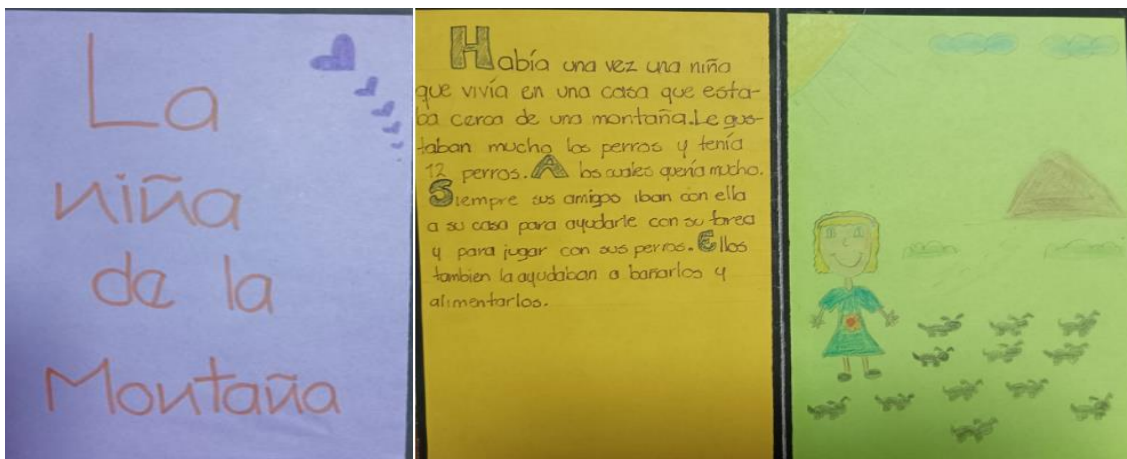 La
niña
de la
Montaña
Había una vez una niña
que vivía en una casa que esta-
ba cerca de una montaña. Le gus-
taban mucho los perros y tenía
12 perros. A los cuales quería mucho.
Siempre sus amigos iban con ella
a su casa para ayudarle con su tarea
y para jugar con sus perros. Ellos
tambien la ayudaban a bañarlos y
alimentarlos.